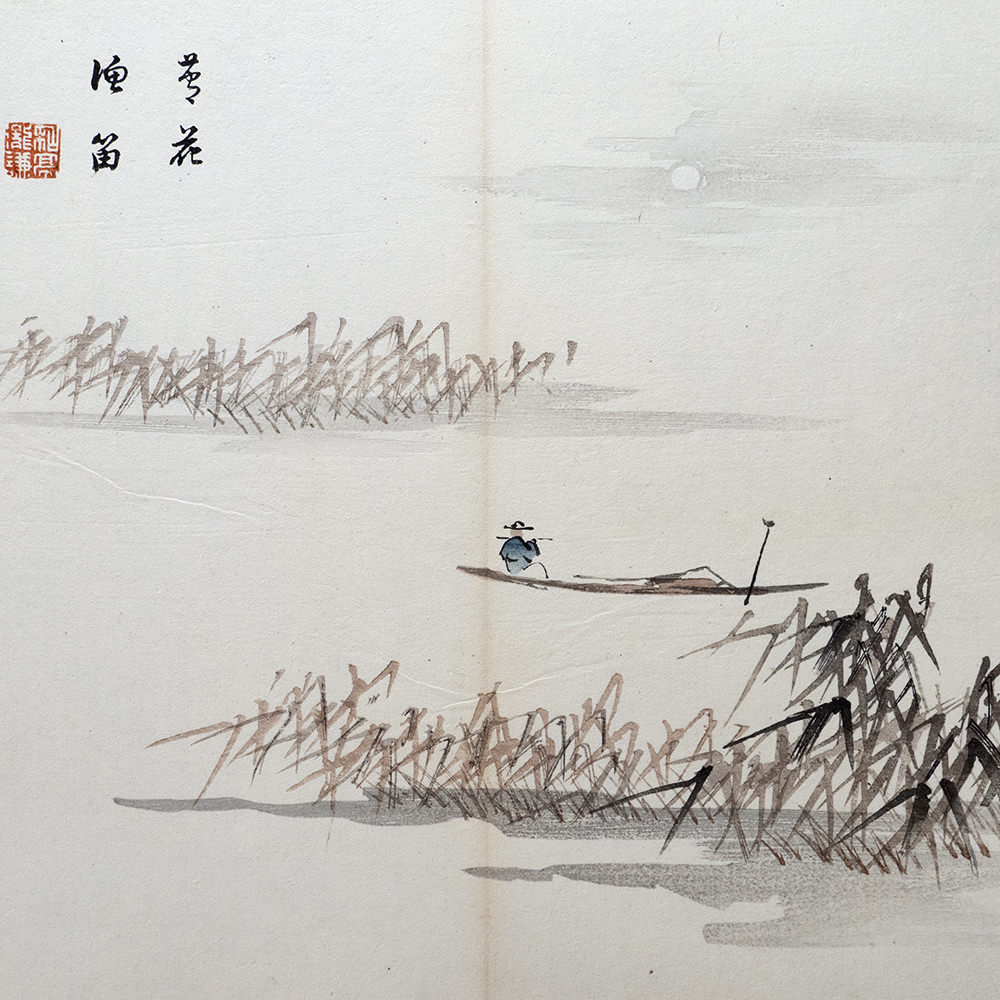 蘆花
漁笛